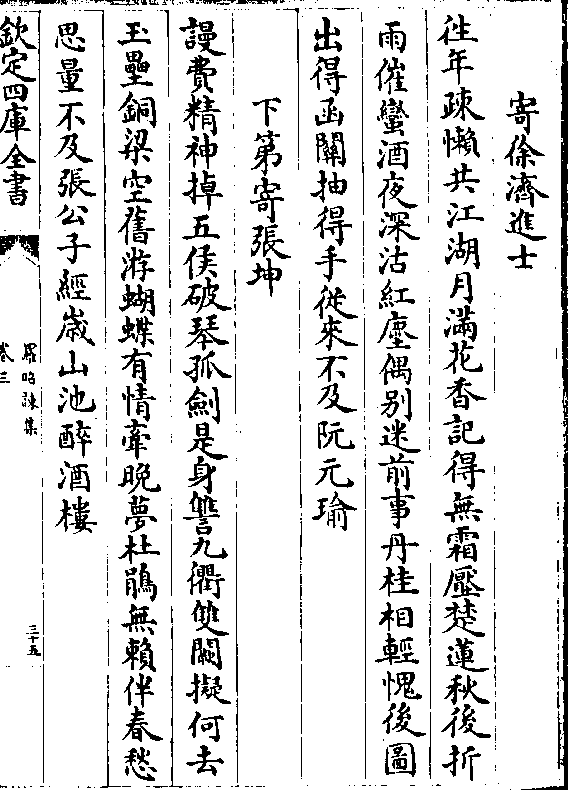 寄徐濟進士
往年疎懶共江湖月滿花香記得無霜壓楚蓮秋後折
雨催蠻酒夜深沽紅塵偶别迷前事丹桂相輕愧後圖
出得函關抽得手従來不及阮元瑜
下第寄張坤
謾費精神掉五侯破琴孤劍是身讐九衢雙闕擬何去
玉壘銅梁空舊游蝴蝶有情牽晩夢杜鵑無賴伴春愁
思量不及張公子經歲山池醉酒樓
欽定四庫全書
羅昭諫集
卷三
三十五